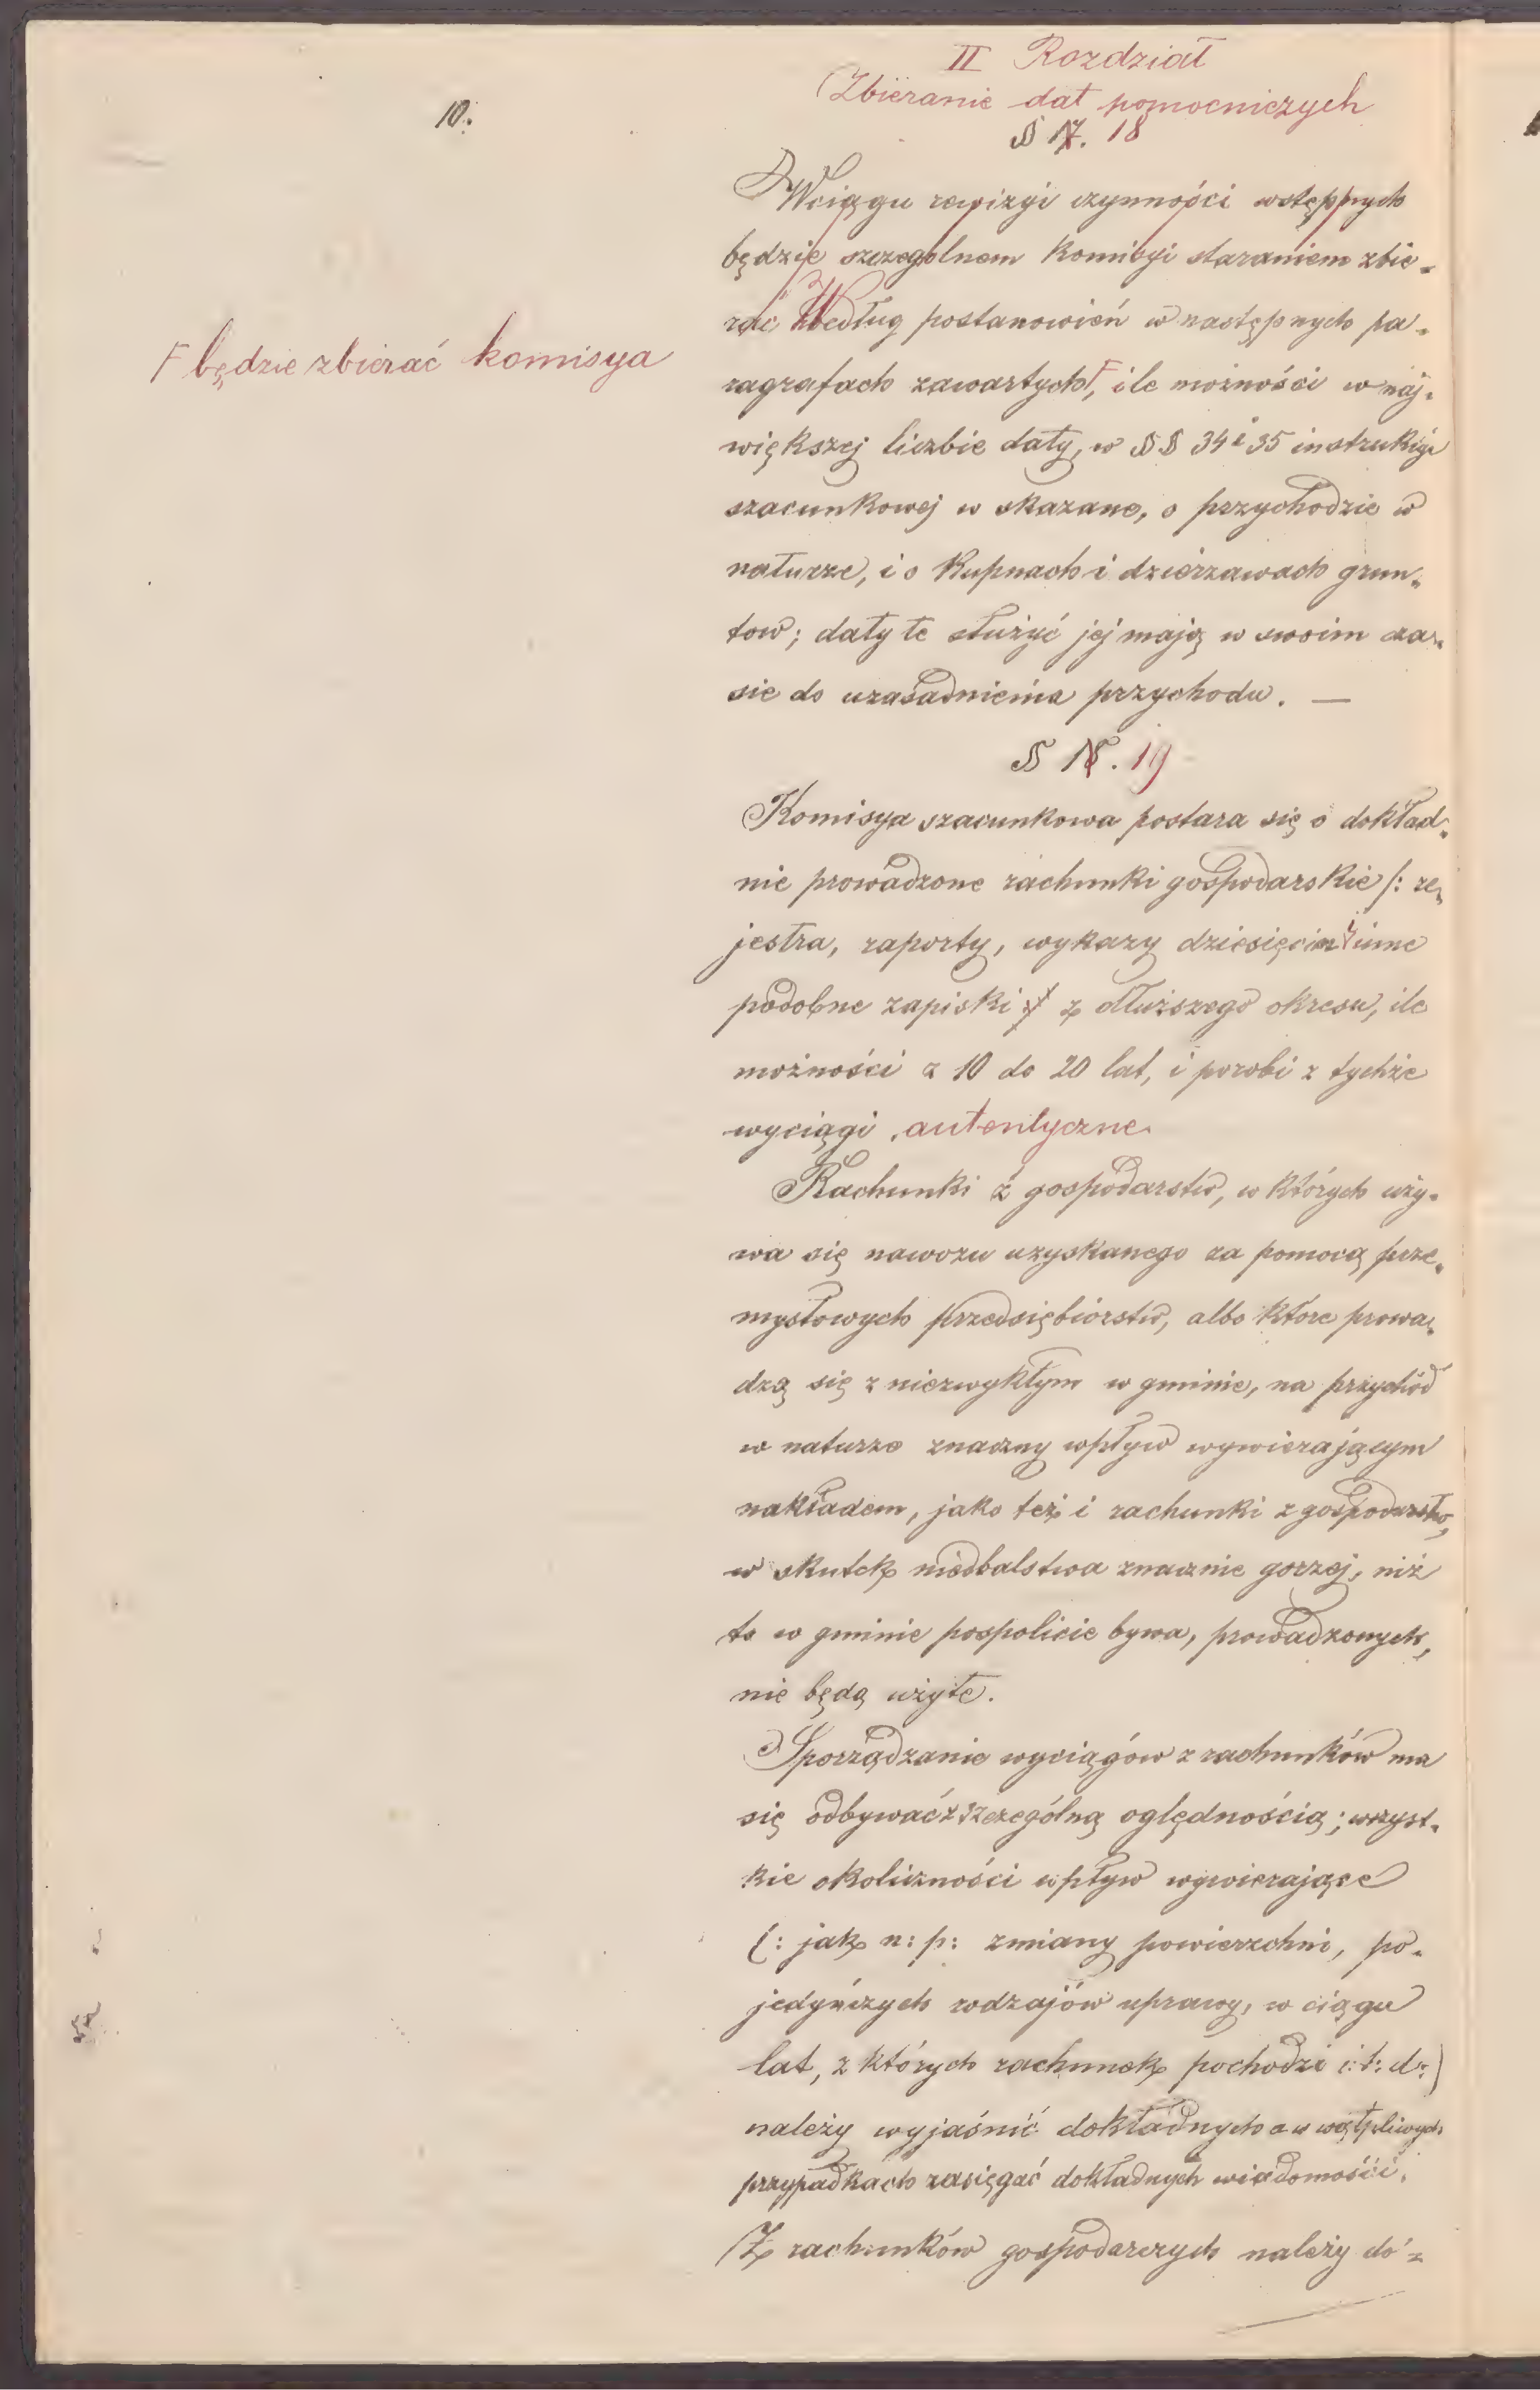 10.
II Rozdział
Zbieranie dat pomocniczych
§ 17. 18
W ciągu rewizyi czynności wstępnych
będzie szczególnem Komisyi staraniem zbie-
rać Według postanowień w następnych pa-
ragrafach zawartych F, ile możności w naj-
F będzie zbierać komisya
większej liczbie daty, w §§ 34 i 35 instrukcyi
szacunkowej w skazane, o przychodzie w
naturze, i o Kupnach i dzierżawach grun-
tow; daty te służyć jej mają w swoim cza-
sie do uzasadnienia przychodu. —
§ 18. 19
Komisya szacunkowa postara się o dokład-
nie prowadzone rachunki gospodarskie (: re-
jestra, raporty, wykazy dziesięcin i inne
podobne zapiski :) z dłuższego okresu, ile
możności z 10 do 20 lat, i porobi z tychże
wyciągi autentyczne
Rachunki z gospodarstw, w których uży-
wa się nawozu uzyskanego za pomocą prze-
mysłowych przedsiębiorstw, albo które prowa-
dzą się z niezwykłym w gminie, na przychód
w naturze znaczny wpływ wywierającym
nakładem, jako też i rachunki z gospodarstw,
w skutek niedbalstwa znacznie gorzej, niż
to w gminie pospolicie bywa, prowadzonych,
nie będą użyte.
Sporządzanie wyciągów z rachunków ma
się odbywać z szczególną oględnością; wszyst-
kie okoliczności wpływ wywierające
(: jak n: p: zmiany powierzchni, po-
jedyńczych rodzajów uprawy, w ciągu
lat, z których rachunek pochodzi i: t: d:)
należy wyjaśnić dokładnych a w wątpliwych
przypadkach zasięgać dokładnych wiadomości.
Z rachunków gospodarczych należy do-